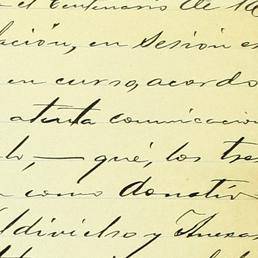 el Centenario de la
ación, en sesión e
en curso, acordo
atenta comunicacion
lo, — qué, los tre
como donativ
ldivielso y